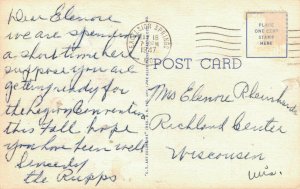 Dear Elenore
we are spending
a short time here
suppose you are
getting ready for
the Legion Convention
this fall hope
you have been well
Sincerely
the Rupps
SPRINGS
1947
PLACE
ONE CENT
STAMP
HERE
POST CARD
Mrs Elenore Rheinhardt
Richland Center
Wisconsin
Wis.